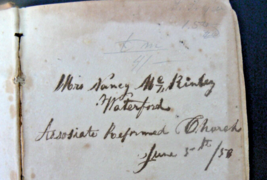 Mrs Nancy McKinley
Waterford
Associate Reformed Church
June 5th/58